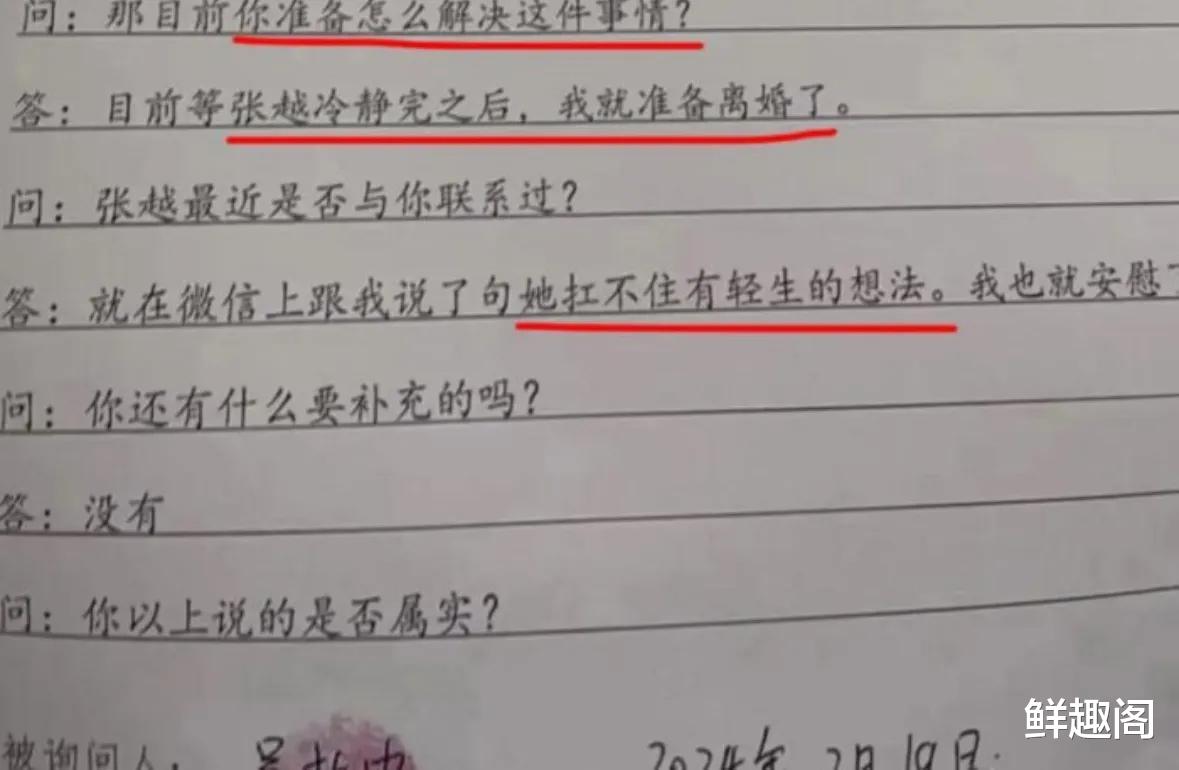 问：那目前你准备怎么解决这件事情？
答：目前等张越冷静完之后，我就准备离婚了。
问：张越最近是否与你联系过？
答：就在微信上跟我说了句她扛不住有轻生的想法。我也就安慰了
问：你还有什么要补充的吗？
答：没有
问：你以上说的是否属实？
鲜趣阁
被询问人：
2024年2月19日